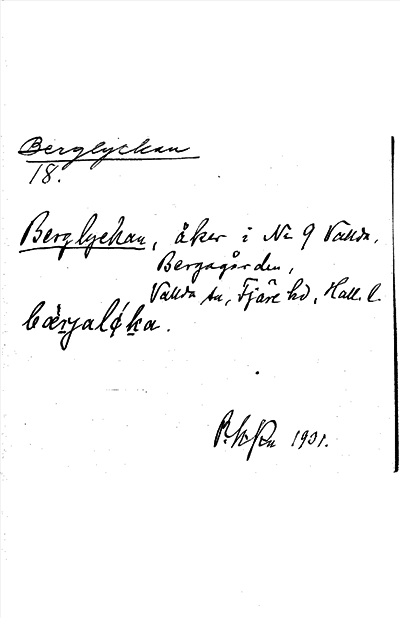 Berglyckan
18.
Berglyckan, åker i No 9 Vallda,
Bergsgården,
Vallda sn, Fjäre hd, Hall. l.
bærjaløka.
1931.